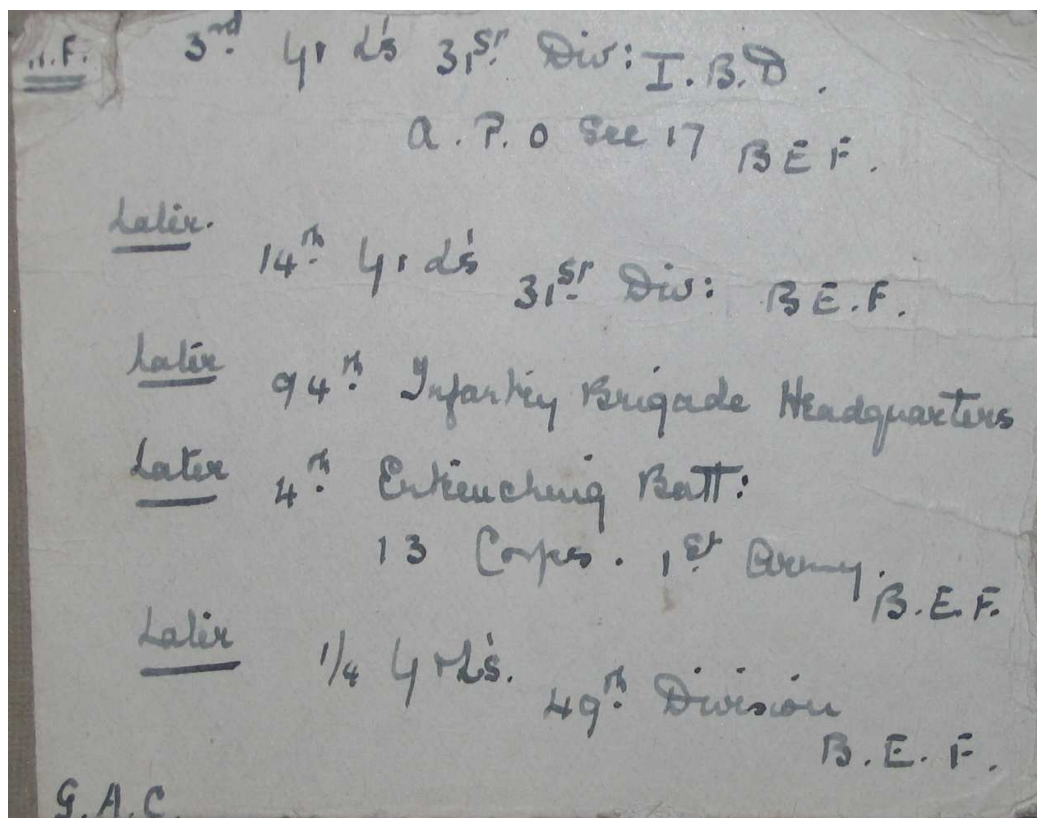 .F. 3rd Y & L's 31st Div: I.B.D.
A.P.O Sec 17 BEF.
Later. 14th Y & L's 31st Div: B.E.F.
Later 94th Infantry Brigade Headquarters
Later 4th Entrenching Batt:
13 Corps. 1st Army. B.E.F.
Later 1/4 Y & L's. 49th Division
B.E.F.
G.A.C.